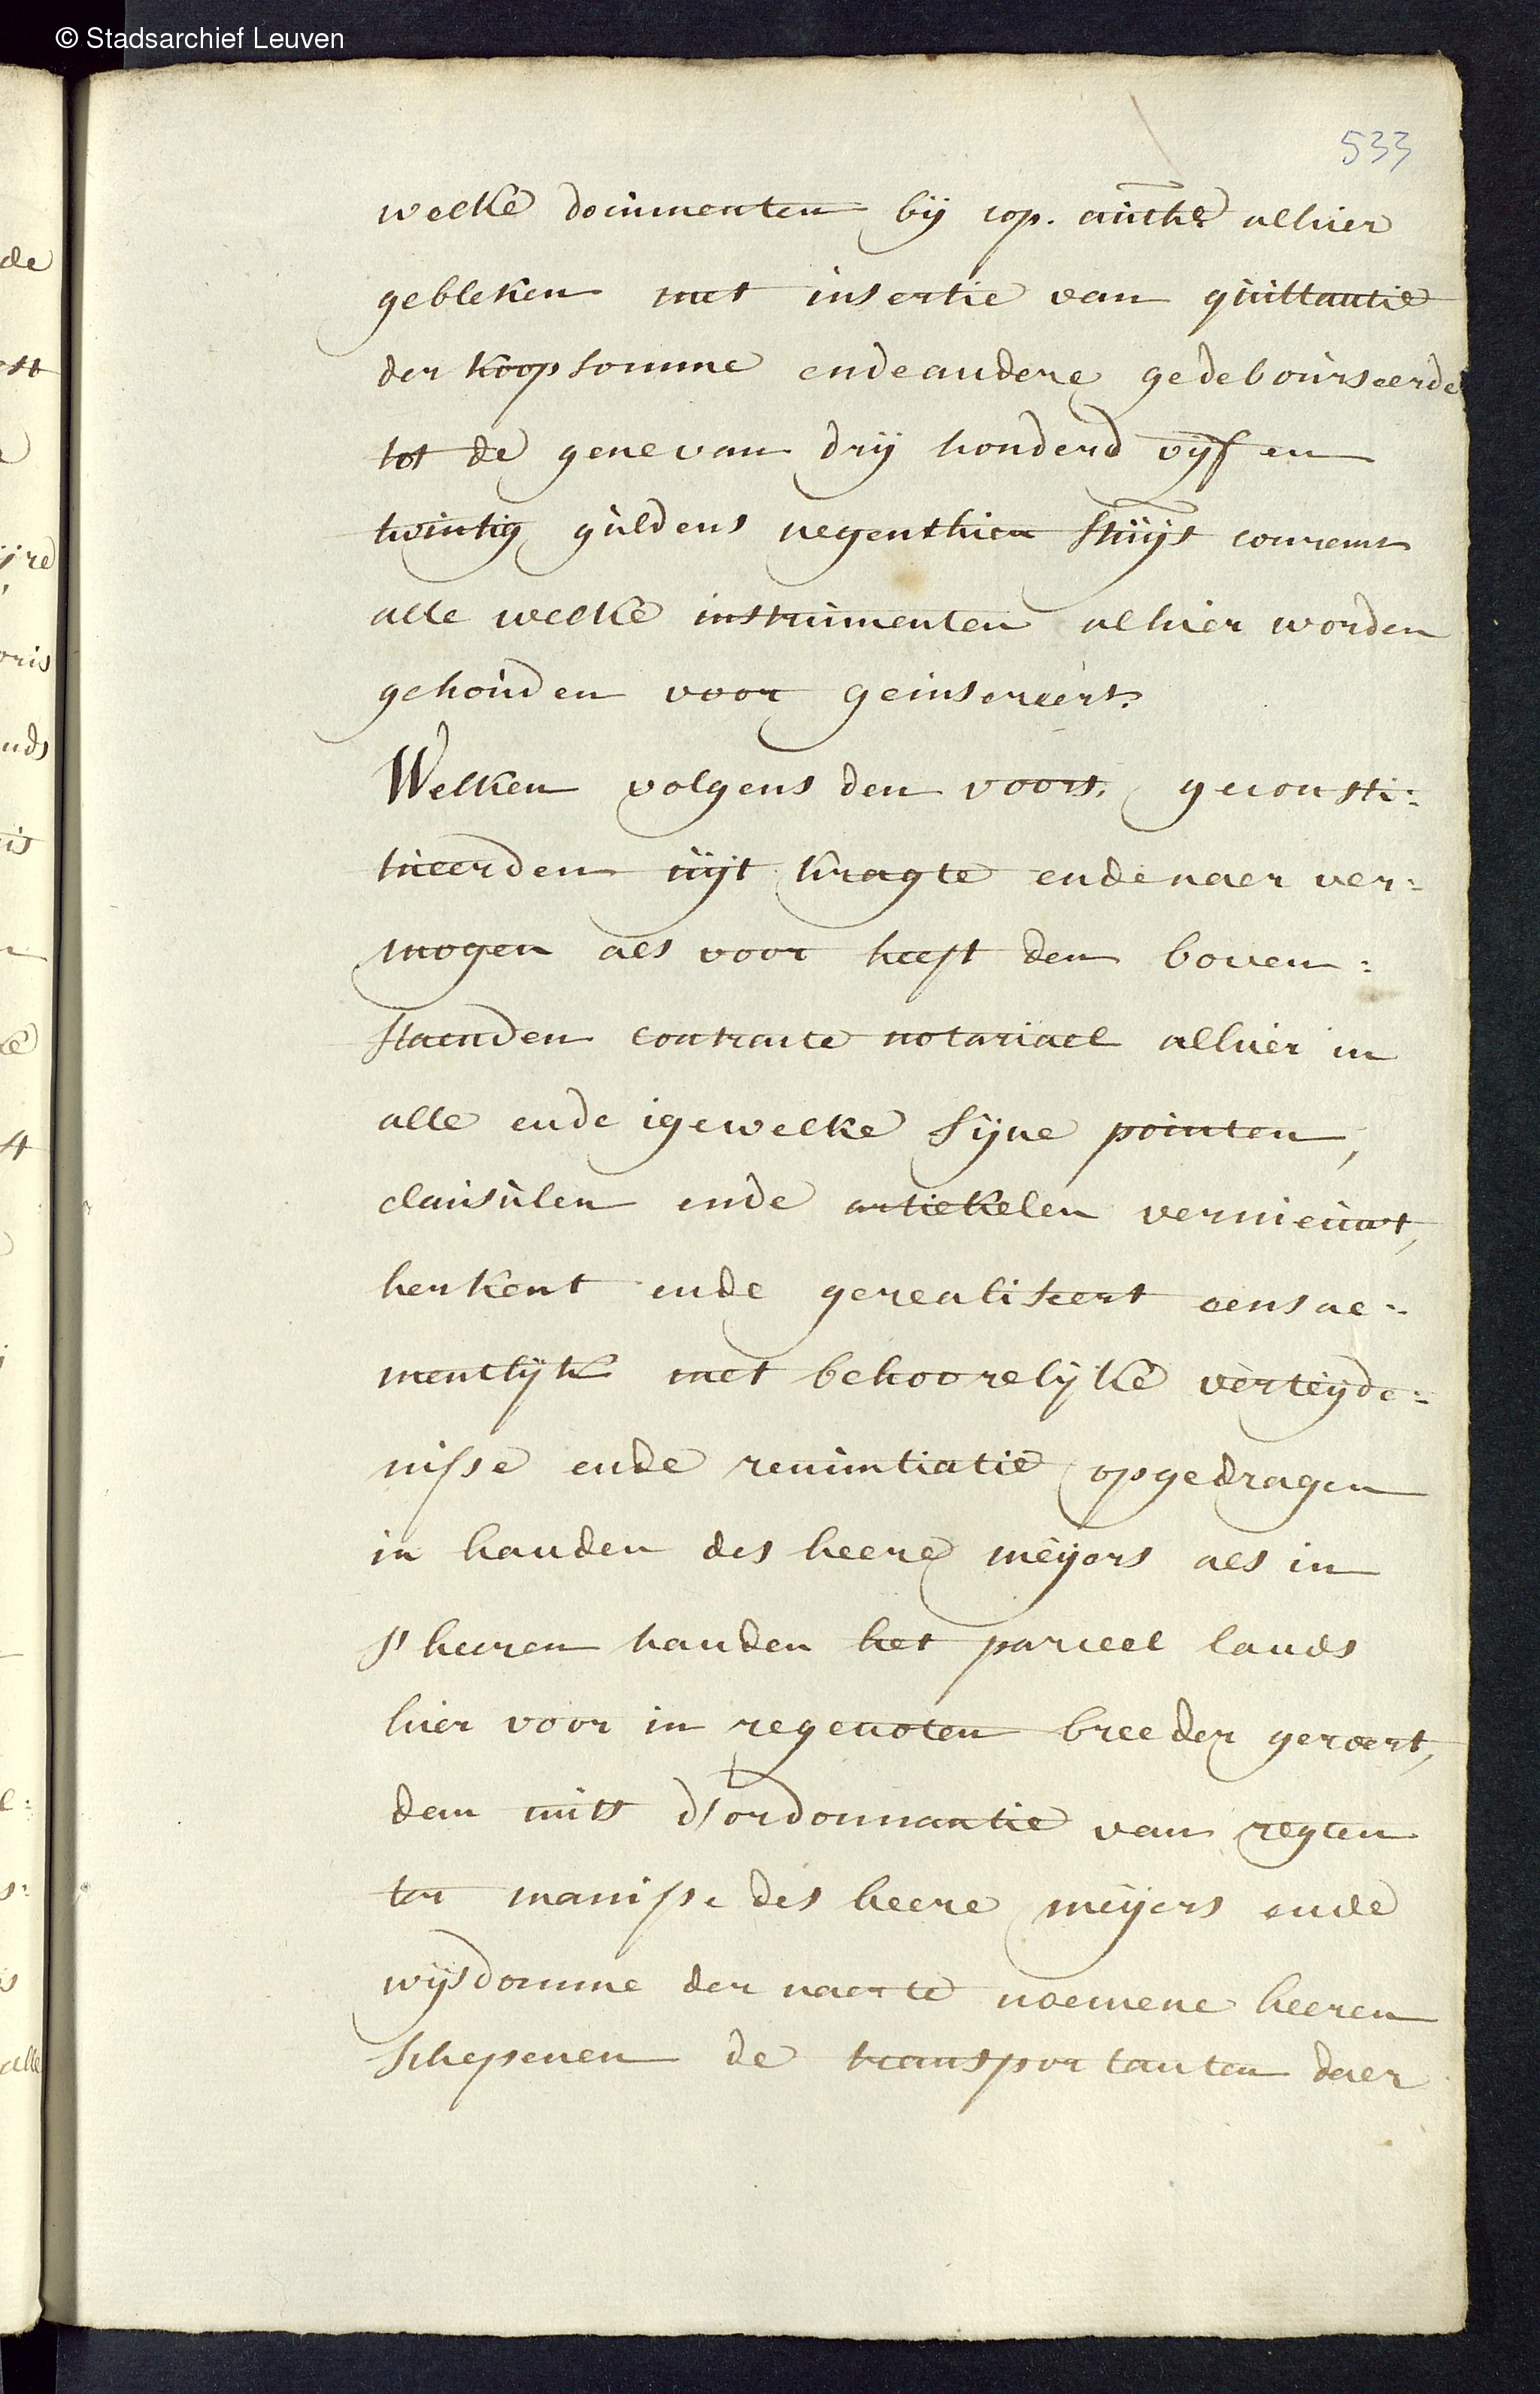 © Stadsarchief Leuven
533
welke documenten bij cop. auth: alhier
gebleken met insertie van quittantie
der koopsomme ende andere gedebourseerde
tot de gene van drij honderd vijf en
twintig guldens negenthien stuijs courant
alle welke instrumenten alhier worden
gehouden voor geinsereert.
Welken volgens den voors. geconsti:
tueerden uijt kragte ende naer ver:
mogen als voor heeft den boven:
staenden contracte notariael alhier in
alle ende igewelke sijne pointen,
clausulen ende artiekelen vernieuwt,
herkent ende gerealiseert oensae:
mentlijk met behoorelijke verteijde:
nisse ende renuntiatie opgedragen
in handen des heere meijers als in
s'heeren handen het parceel lands
hier voor in regenoten breeder geroert,
dan mits d'ordonnantie van regten
ter manisse des heere meijers ende
wijsdomme der naerte noemene heeren
schepenen de transportanten daer
de
alle